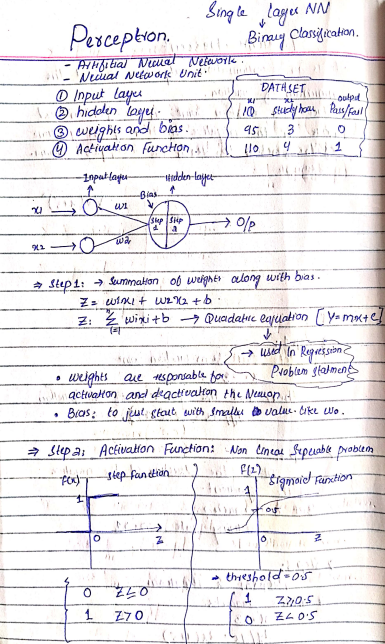 Single layer NN
Perception.
Binary Classification.
- Artificial Neural Network
- Neural Network Unit.
① Input layer
② hidden layer.
③ weights and bias.
④ Activation Function
DATASET
x1 x2 output
IQ Studyhour Pass/Fail
95 3 0
110 4 1
Input layer Hidden layer
Bias
x1 w1 Step 1 Step 2 O/P
x2 w2
⇒ Step1: → Summation of weights along with bias.
Z = w1x1 + w2x2 + b
Z: n∑i=1 wixi + b → Quadatic equation [Y=mx+c]
→ used In Regression
Problem statment
• weights are responsable for
activation and deactivation the Neuron
• Bias: to just start with smaller value like w0.
⇒ Step 2: Activation Function: Non linear Seperable problem
F(x) Step Function
1
0 Z
F(Z) Sigmoid Function
1
0.5
0 Z
→ threshold = 0.5
0 Z≤0
1 Z>0
1 Z≥0.5
0 Z<0.5